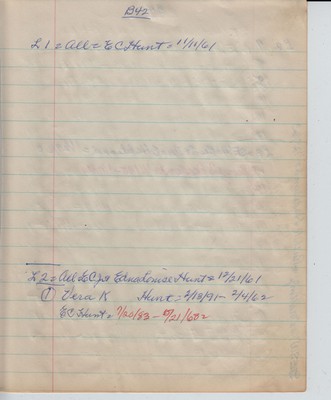 B42
L 1 = All = E C Hunt = 11/10/61
L 2 = All E C Jr Edna Louise Hunt = 12/21/61
① Vera K Hunt = 2/18/91 - 2/4/62
E C Hunt = 7/20/83 -